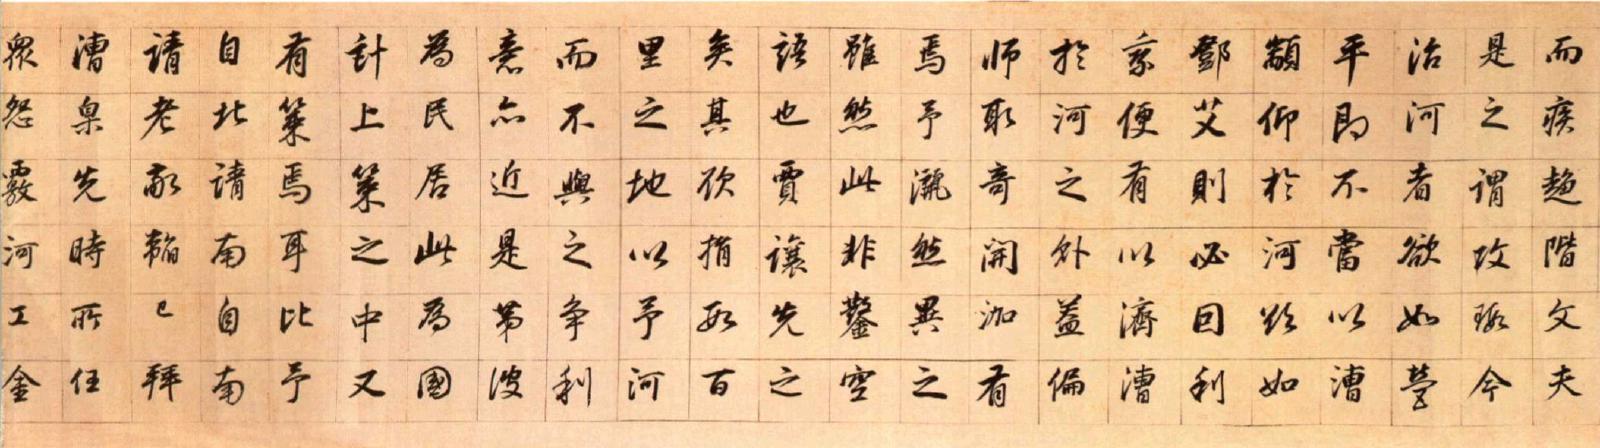 而疾趍階文夫
是之謂攻瑕今
治河者欲如營
平即不當以漕
顓仰於河歟如
鄧艾則必回利
便有以濟漕
於河之外蓋偏
師取奇開泇有
焉予瀛然異之
雖然此非鑿空
語也賈讓先之
矣其欲捐数百
里之地以予河
而不與之争利
意亦近是第彼
為民居此為國
計上策之中又
有策焉耳比予
自北請南自南
請老敬韜已拜
漕臬先時所任
眾怨覈河工金